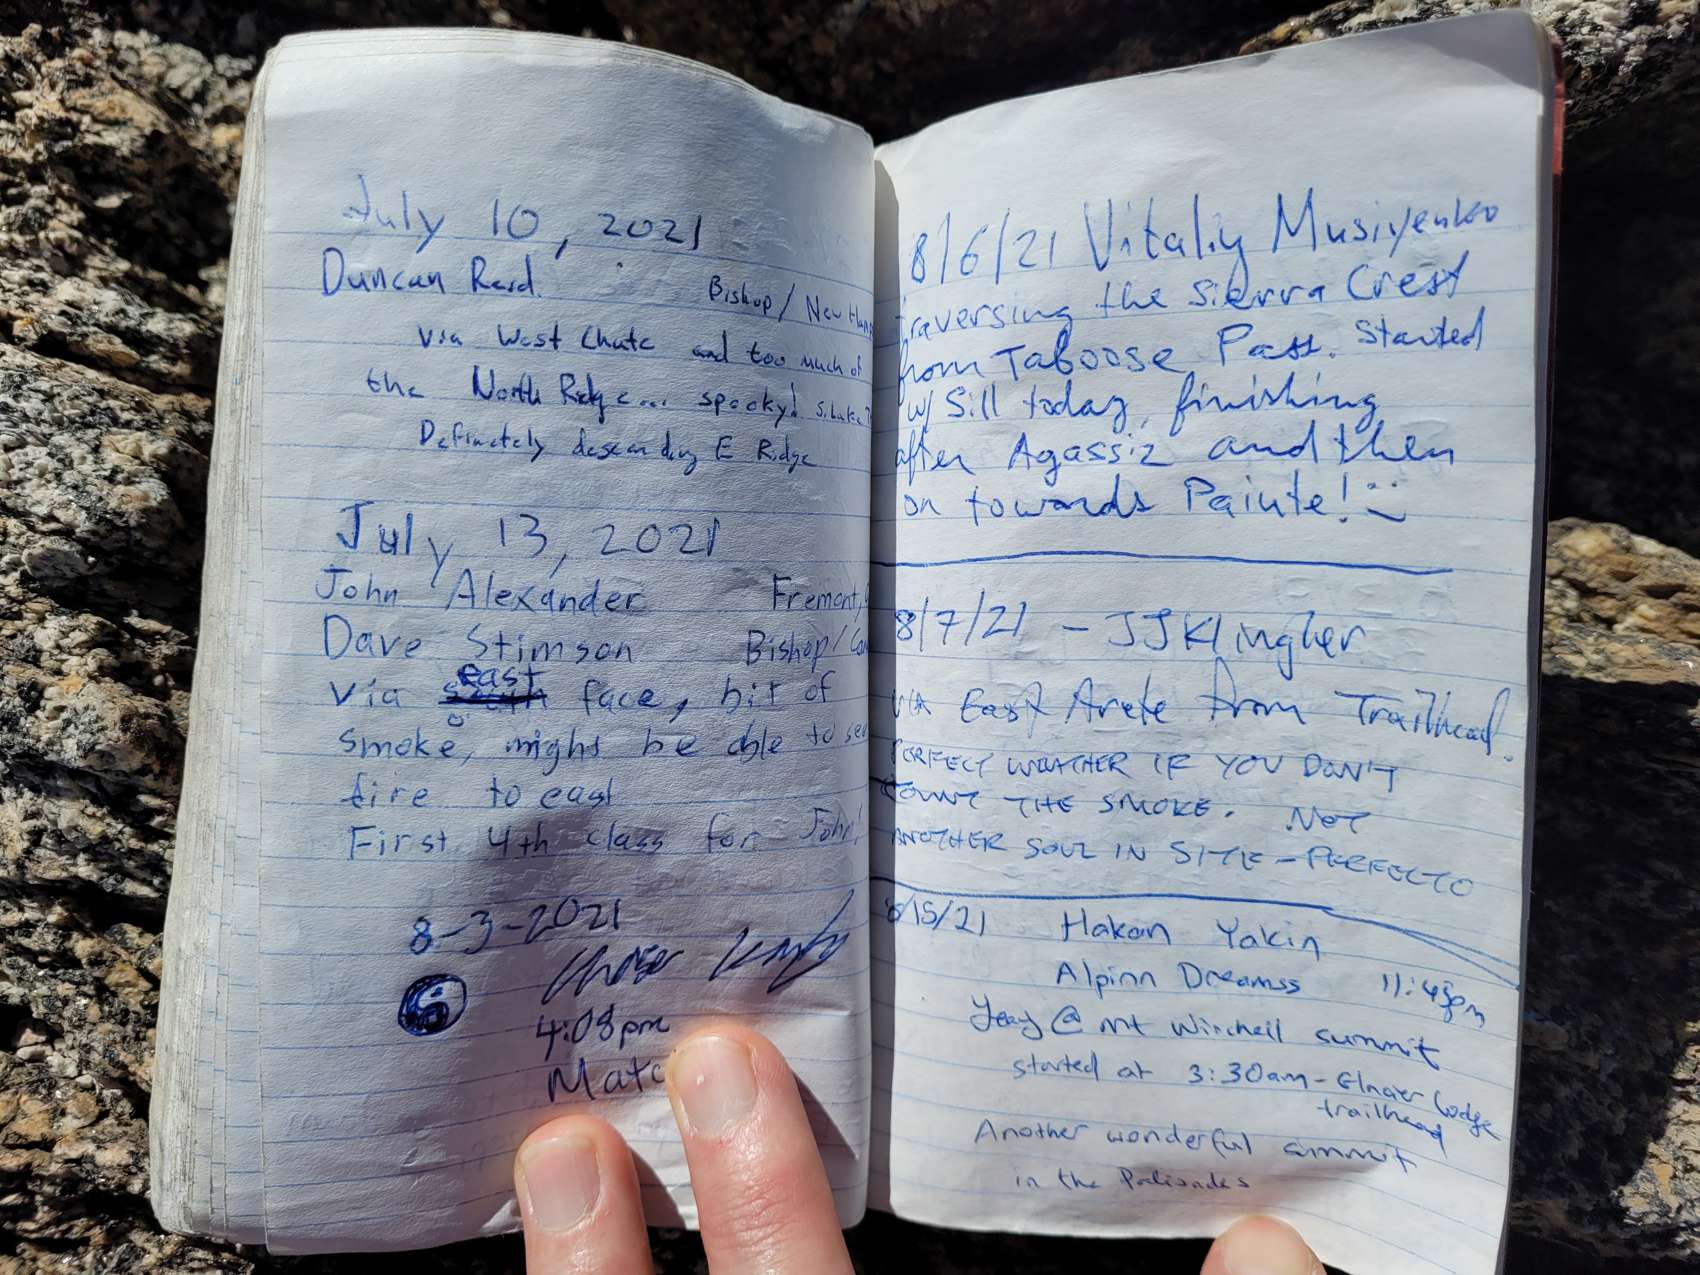 July 10, 2021
Duncan Reid Bishop/
via West Chute and too much of
the North Ridge... spooky!
Definetely descending E Ridge
July 13, 2021
John Alexander Fremont,
Dave Stimson Bishop/
via east face, bit of
smoke, might be able to see
fire to east
First 4th class for John!
8-3-2021
4:08pm
8/6/21 Vitaliy Musiyenko
traversing the Sierra Crest
from Taboose Pass. Started
w/ Sill today, finishing
after Agassiz and then
on towards Paiute!
8/7/21 - JJ Klingler
VIA East Arete from Trailhead.
PERFECT WEATHER IF YOU DON'T
COUNT THE SMOKE. NOT
ANOTHER SOUL IN SITE - PERFECTO
8/15/21 Hakan Yakin
Alpinn Dreamss
Yeay @ mt Winchell summit
started at 3:30am - Glacier Lodge
trailhead
Another wonderful summit
in the Palisades